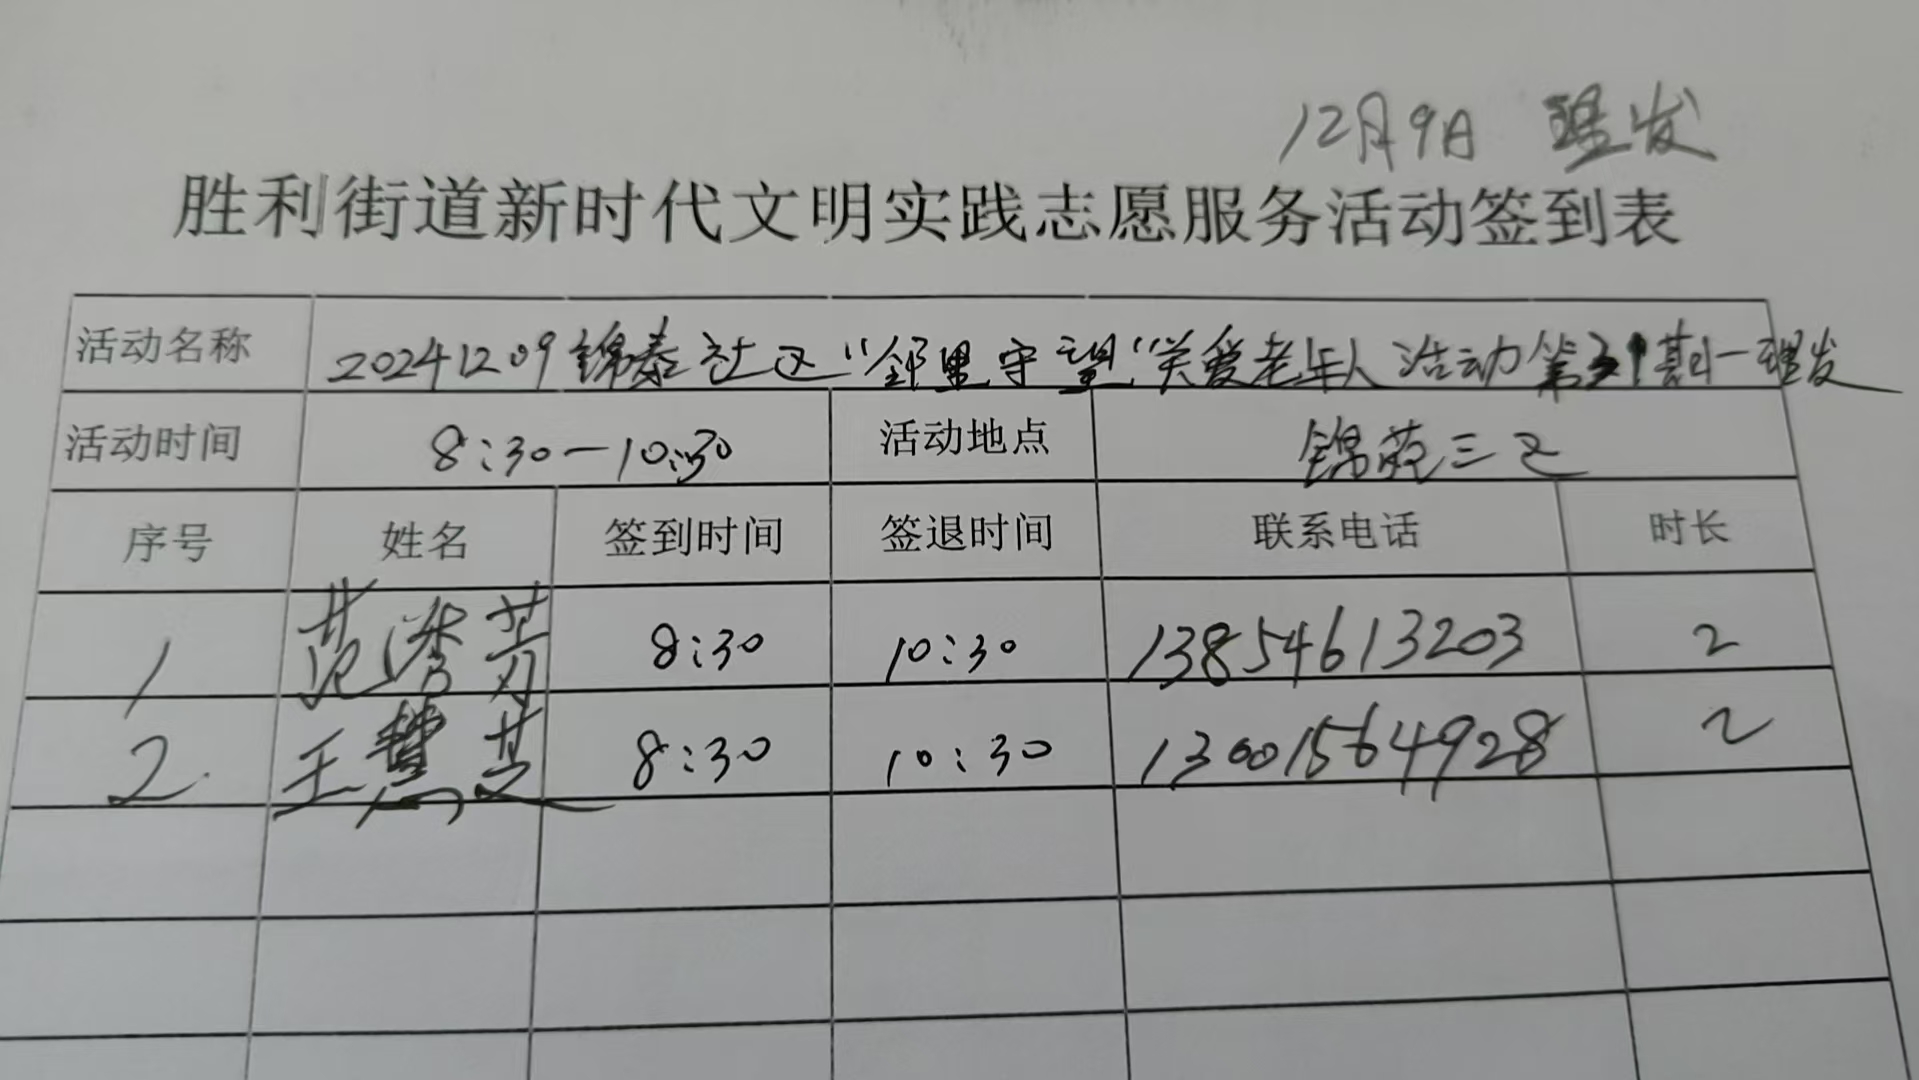 12月9日 理发
胜利街道新时代文明实践志愿服务活动签到表
活动名称 20241209锦泰社区“邻里守望”关爱老年人活动第31期—理发
活动时间 8:30—10:30 活动地点 锦苑三区
序号 姓名 签到时间 签退时间 联系电话 时长
1 范秀芳 8:30 10:30 13854613203 2
2 王慧芝 8:30 10:30 13001564928 2